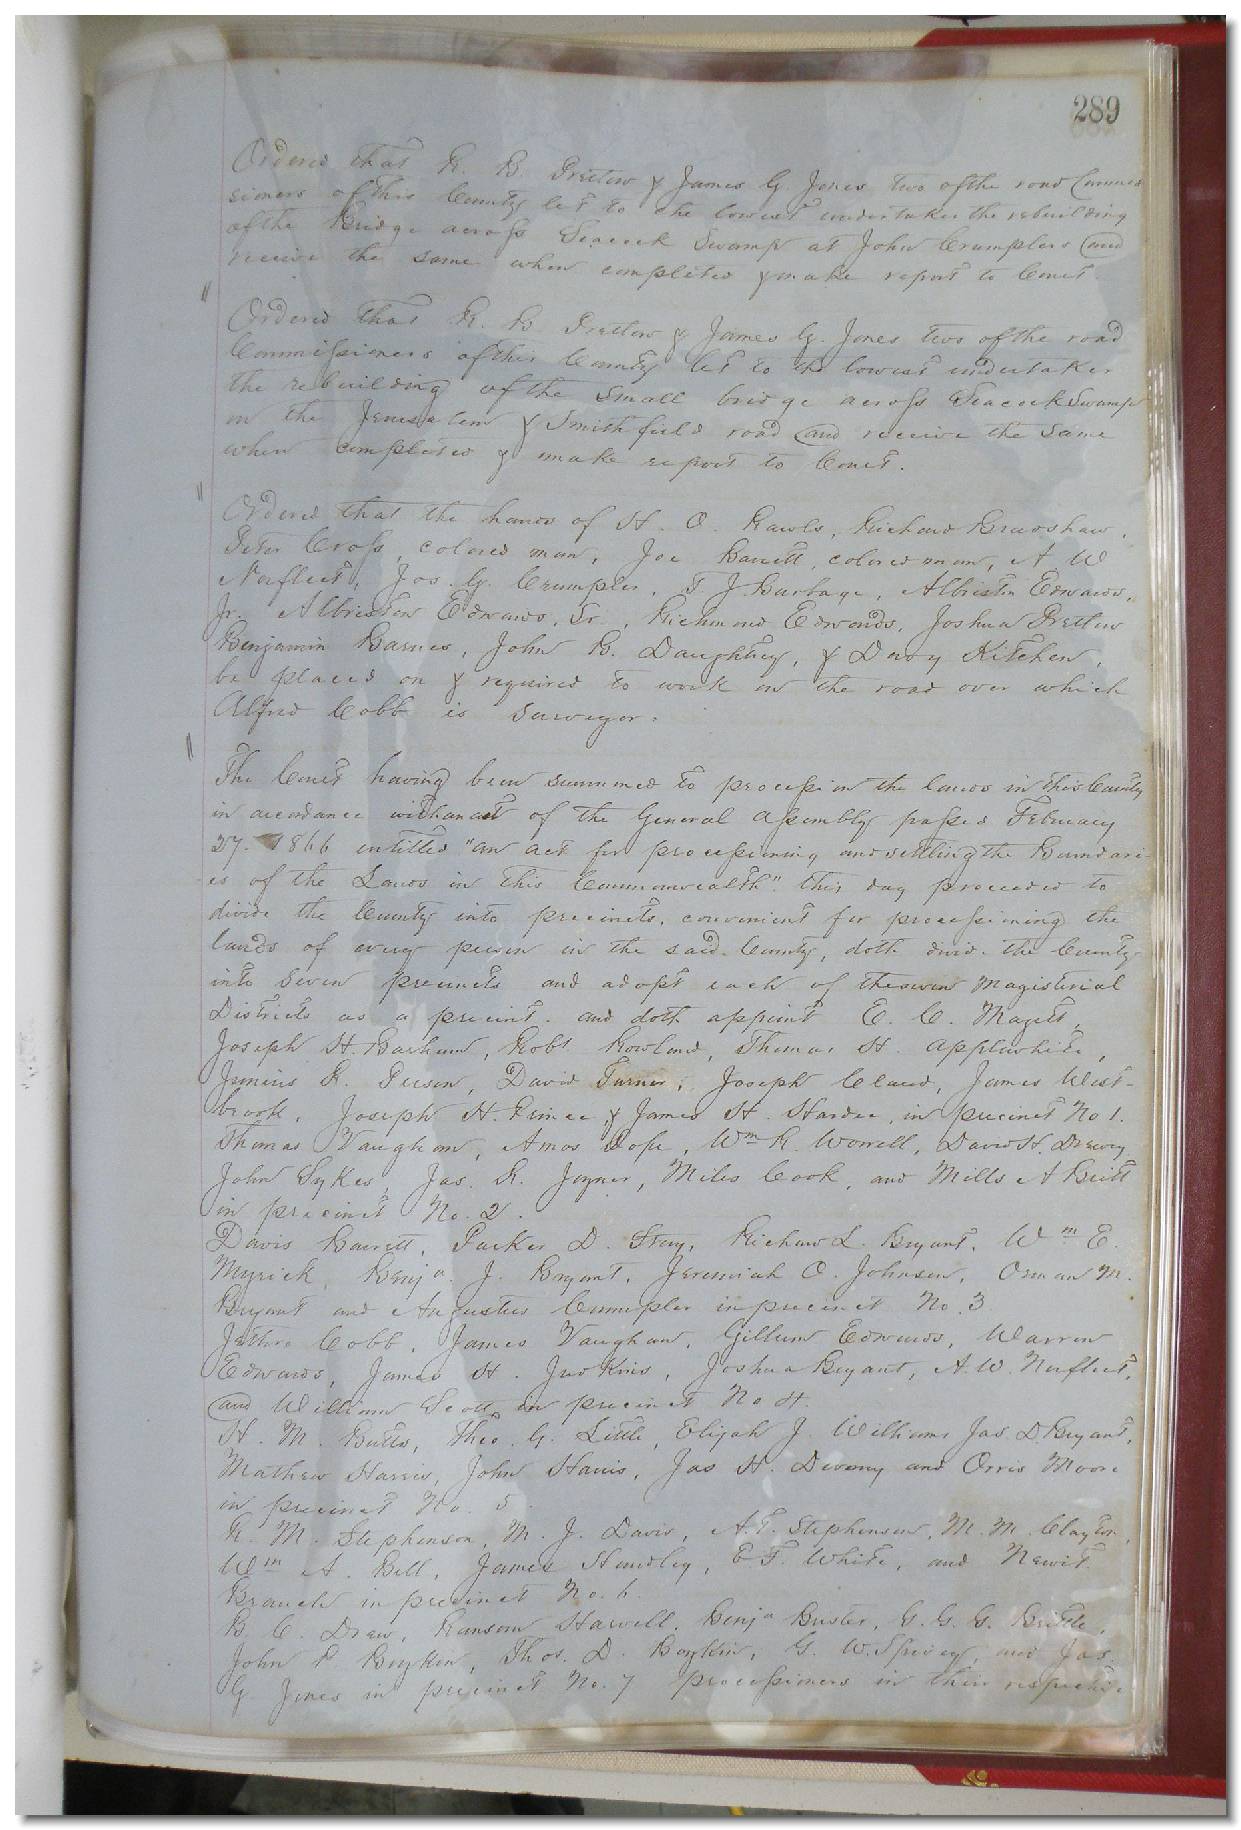 289
Ordered that R. B. Pretlow & James G. Jones two of the road Commis
sioners of this County let to the lowest undertaker the rebuilding
of the Bridge across Seacock Swamp at John Crumplers and
receive the same when completed & make report to Court.
Ordered that R. B. Pretlow & James G. Jones two of the road
Commissioners of this County let to the lowest undertaker
the rebuilding of the small bridge across Seacock Swamp
on the Jerusalem & Smithfield road and receive the same
when completed & make report to Court.
Ordered that the hands of H. O. Rawls, Richard Bradshaw,
Peter Cross, colored man, Joe Barrett, colored man, A W
Norfleet, Jos. G. Crumpler, T. J. Burbage, Albriston Edwards,
Jr. Albriston Edwards, Sr., Richmond Edwards, Joshua Pretlow
Benjamin Barnes, John B. Daughtrey, & Davy Kitchen,
be placed on & required to work on the road over which
Alfred Cobb is surveyor.
The Court having been summoned to procession the lands in this County
in accordance with an act of the General Assembly passed February
27. 1866 entitled "an act for processioning and settling the Boundari-
es of the Lands in this Commonwealth" this day proceeded to
divide the County into precincts, convenient for processioning the
lands of every person in the said County, doth divide the County
into seven precincts and adopt each of the seven Magisterial
Districts as a precinct. and doth appoint E. C. Magett,
Joseph H. Barham, Robt Rowland, Thomas H. Applewhite,
Junius R. Person, David Turner, Joseph Claud, James West-
brook, Joseph H. Prince & James H. Hardee, in precinct No 1.
Thomas Vaughan, Amos Pope, Wm R. Worrell, David H. Drewry
John Sykes, Jas. R. Joyner, Miles Cook, and Mills A Britt
in precinct No. 2.
Davis Barrett, Parker D. Fray, Richard L. Bryant, Wm E.
Myrick, Benja. J. Bryant, Jeremiah O. Johnson, Orman M.
Bryant and Augustus Crumpler in precinct No. 3
Jethro Cobb, James Vaughan, Gillum Edwards, Warren
Edwards, James H. Judkins, Joshua Bryant, A. W. Norfleet,
and William Scott in precinct No 4.
H. M. Butts, Theo. G. Little, Elijah J. Williams Jas. D. Bryant,
Mathew Harris, John Harris, Jas H. Devany and Orris Moore
in precinct No. 5.
R. M. Stephenson, M. J. Davis, A. T. Stephenson, M. M. Clayton,
Wm A. Bell, James Handley, E. F. White, and Newit
Branch in precinct No. 6.
B. C. Drew, Ransom Harwell, Benja Buster, G. G. G. Brittle,
John P. Boykin, Thos. D. Boykin, G. W. Spivey, and Jas.
G. Jones in precinct No. 7 processioners in their respective